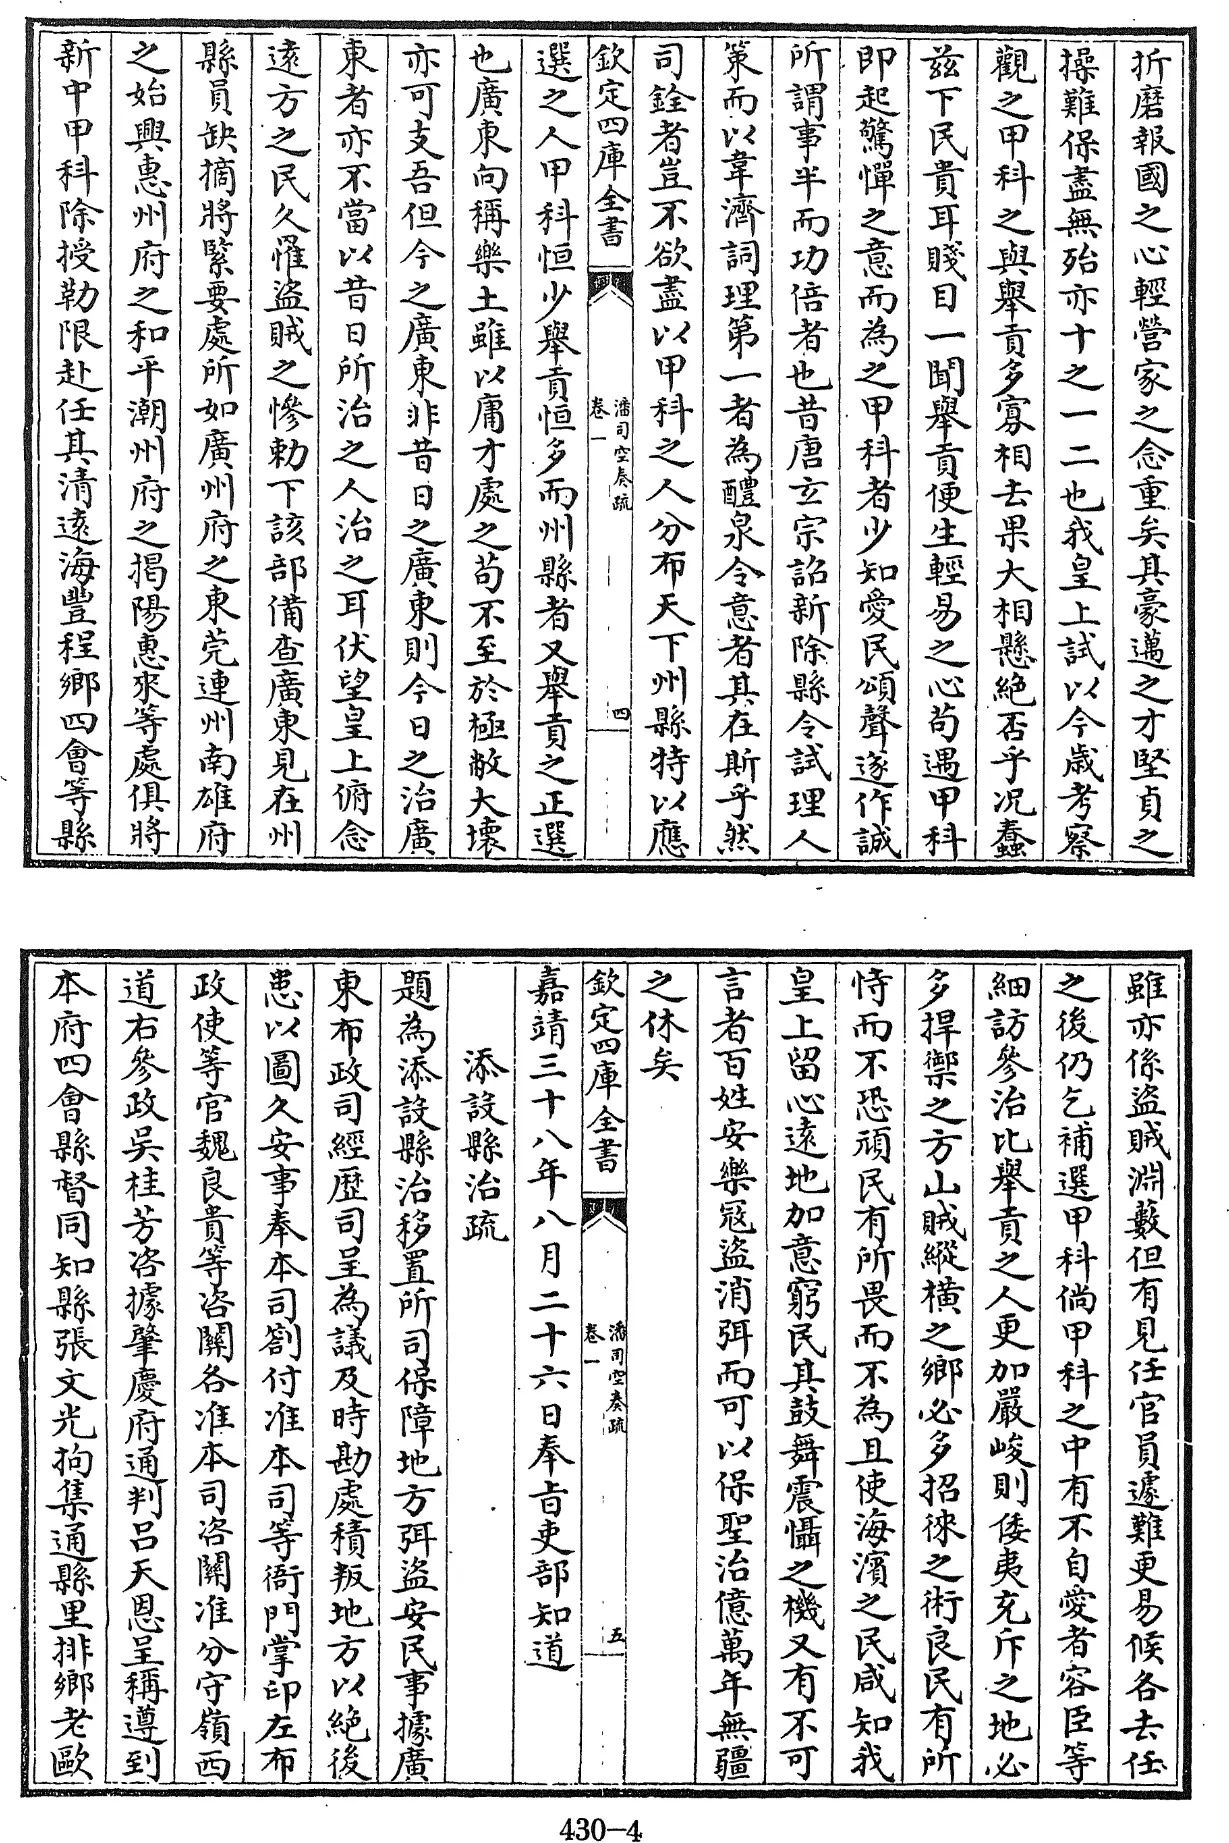 折磨報國之心輕營家之念重矣其豪邁之才堅貞之
操難保盡無殆亦十之一二也我皇上試以今歲考察
觀之甲科之與舉貢多寡相去果大相懸絕否乎况蠢
兹下民貴耳賤目一聞舉貢便生輕易之心苟遇甲科
即起驚憚之意而為之甲科者少知愛民頌聲遂作誠
所謂事半而功倍者也昔唐玄宗詔新除縣令試理人
策而以韋濟詞理第一者為醴泉令意者其在斯乎然
司銓者豈不欲盡以甲科之人分布天下州縣特以應
欽定四庫全書
潘司空奏疏
卷一
四
選之人甲科恒少舉貢恒多而州縣者又舉貢之正選
也廣東向稱樂土雖以庸才處之苟不至於極敝大壞
亦可支吾但今之廣東非昔日之廣東則今日之治廣
東者亦不當以昔日所治之人治之耳伏望皇上俯念
遠方之民久罹盜賊之慘勅下該部備查廣東見在州
縣員缺摘將緊要處所如廣州府之東莞連州南雄府
之始興惠州府之和平潮州府之揭陽惠來等處俱將
新中甲科除授勒限赴任其清遠海豐程鄉四會等縣
雖亦係盜賊淵藪但有見任官員遽難更易候各去任
之後仍乞補選甲科倘甲科之中有不自愛者容臣等
細訪參治比舉貢之人更加嚴峻則倭夷充斥之地必
多捍禦之方山賊縱横之鄉必多招徠之術良民有所
恃而不恐頑民有所畏而不為且使海濱之民咸知我
皇上留心遠地加意窮民其鼓舞震懾之機又有不可
言者百姓安樂冦盜消弭而可以保聖治億萬年無疆
之休矣
欽定四庫全書
潘司空奏疏
卷一
五
嘉靖三十八年八月二十六日奉旨吏部知道
添設縣治疏
題為添設縣治移置所司保障地方弭盜安民事據廣
東布政司經歷司呈為議及時勘處積叛地方以絕後
患以圖久安事奉本司劄付准本司等衙門掌印左布
政使等官魏良貴等咨關各准本司咨關准分守嶺西
道右參政吳桂芳咨據肇慶府通判吕天恩呈稱遵到
本府四會縣督同知縣張文光拘集通縣里排鄉老歐
430-4